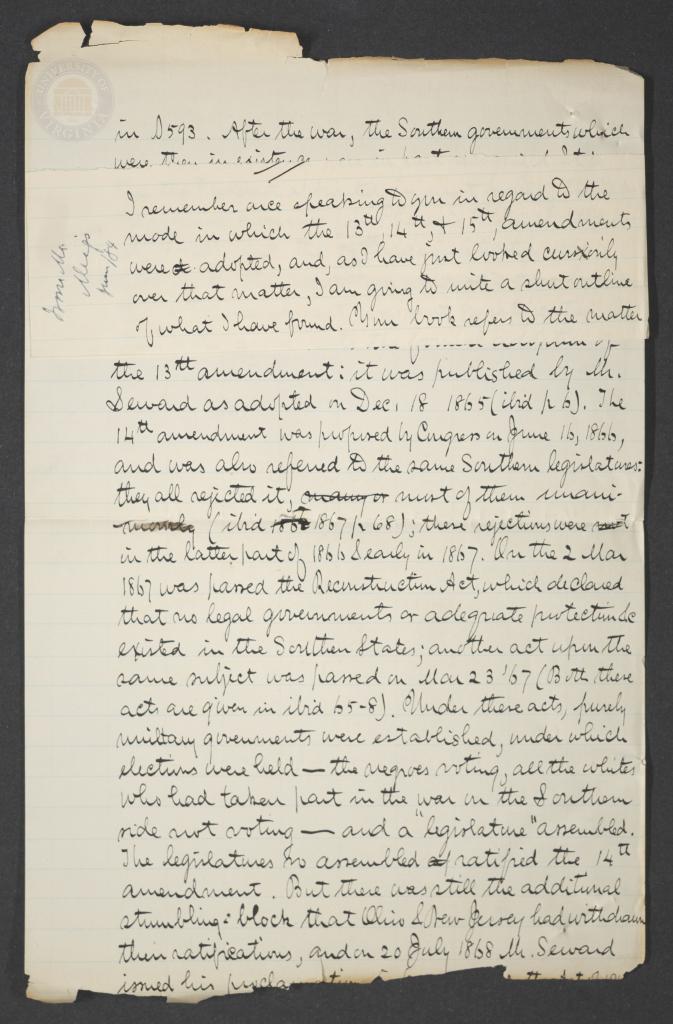 UNIVERSITY OF VIRGINIA
in D593. After the war, the Southern governments which
were then in existence
I remember once speaking to you in regard to the
mode in which the 13th, 14th, & 15th, amendments
were adopted, and, as I have just looked cursorily
over that matter, I am going to write a short outline
of what I have found. Your book refers to the matter
From Mr.
Meigs
the 13th amendment: it was published by Mr.
Seward as adopted on Dec. 18 1865 (ibid p 6). The
14th amendment was proposed by Congress on June 16, 1866,
and was also referred to the same Southern legislatures:
they all rejected it, many or most of them unani-
mously (ibid 1867 p 68); these rejections were
in the latter part of 1866 & early in 1867. On the 2 Mar
1867 was passed the Reconstruction Act, which declared
that no legal governments or adequate protection &c
existed in the Southern States; another act upon the
same subject was passed on Mar 23 '67 (Both these
acts are given in ibid 65-8). Under these acts, purely
military governments were established, under which
elections were held — the negroes voting, all the whites
who had taken part in the war on the Southern
side not voting — and a "legislature" assembled.
The legislatures so assembled ratified the 14th
amendment. But there was still the additional
stumbling-block that Ohio & New Jersey had withdrawn
their ratifications, and on 20 July 1868 Mr. Seward
issued his proclamation